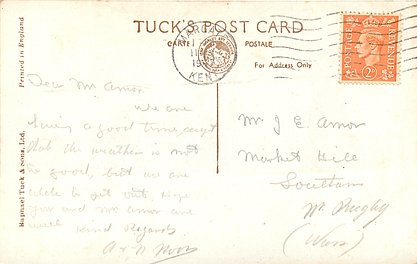 TUCK'S POST CARD
CARTE POSTALE
For Address Only
Printed in England
Raphael Tuck & Sons, Ltd.
MARGATE
KENT
POSTAGE
2D
Dear Mr Amor.
We are
having a good time, except
that the weather is not
so good, but we are
able to get out, hope
you and Mrs Amor are
well
Kind Regards
Mr J E Amor
Market Hill
Southam
Nr Rugby
(Wars)